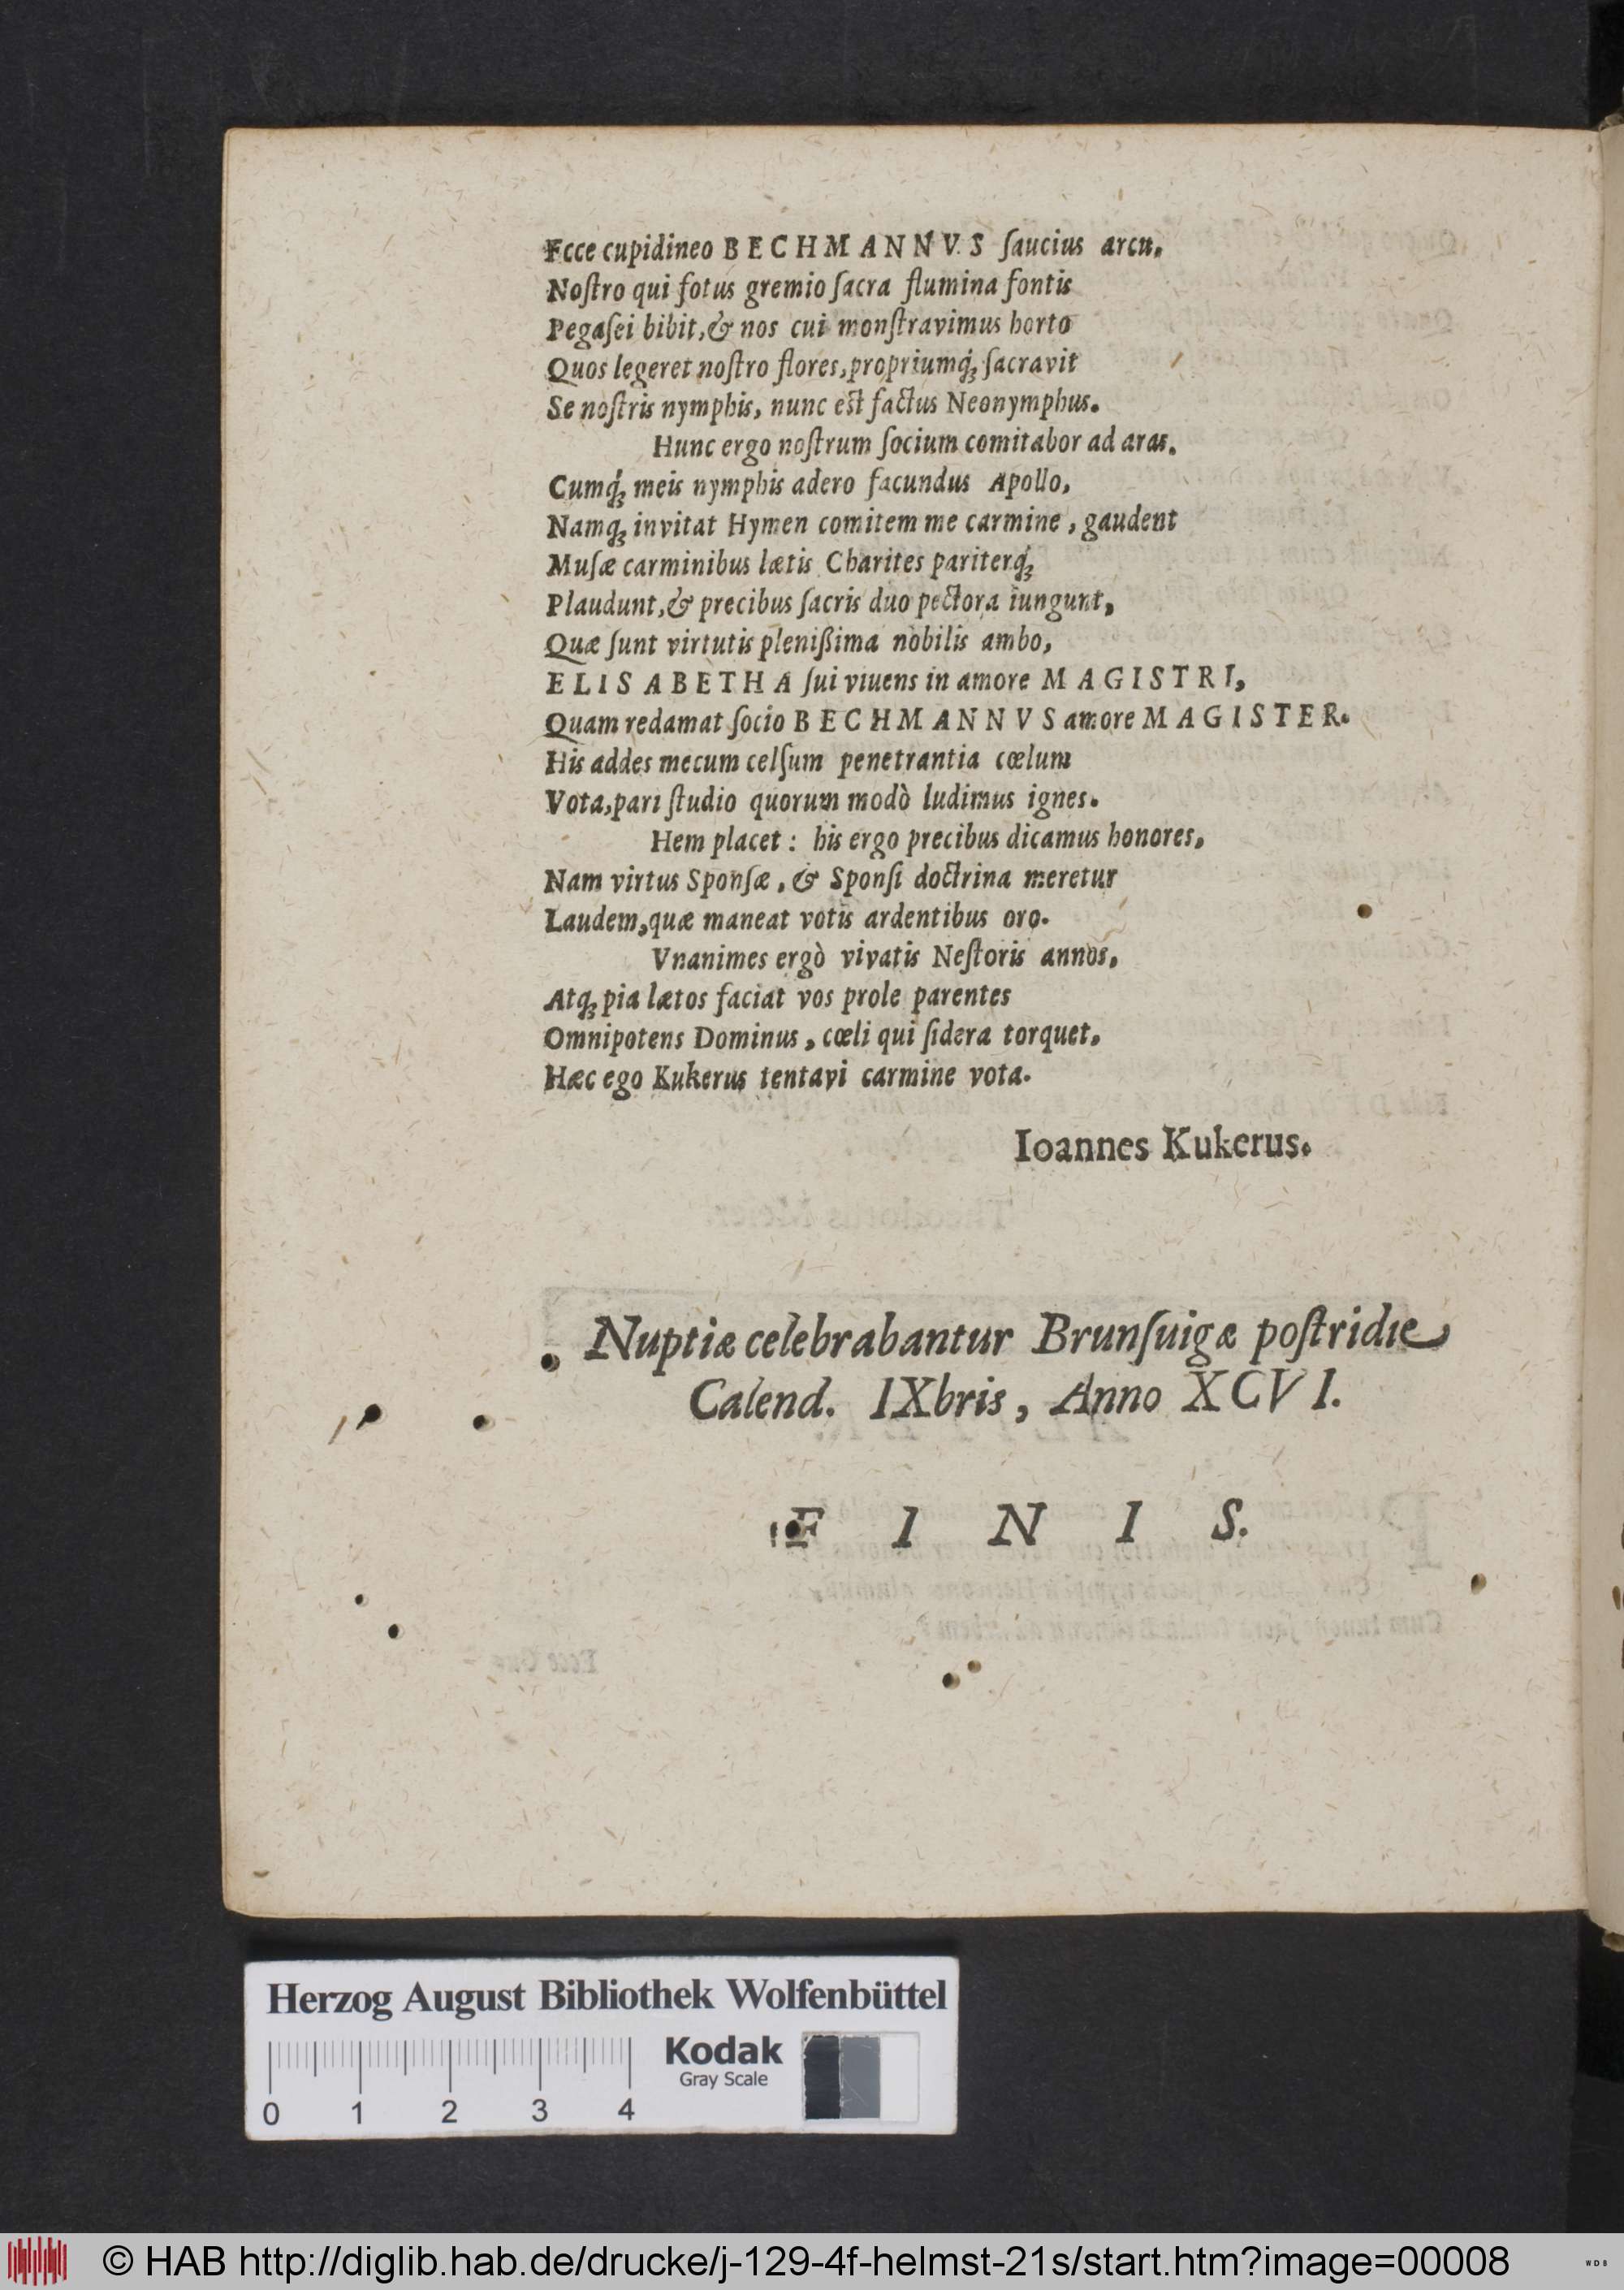 Ecce cupidineo BECHMANNVS ſaucius arcu.
Noſtro qui fotus gremio ſacra flumina fontis
Pegaſei bibit, & nos cui monſtravimus horto
Quos legeret noſtro flores, propriumq́ꝫ ſacravit
Se noſtris nymphis, nunc eſt factus Neonymphus.
Hunc ergo noſtrum ſocium comitabor ad aras.
Cumq́ꝫ meis nymphis adero facundus Apollo,
Namqꝫ invitat Hymen comitem me carmine, gaudent
Muſæ carminibus lætis Charites pariterq́ꝫ
Plaudunt, & precibus ſacris duo pectora iungunt,
Quæ ſunt virtutis pleniſsima nobilis ambo,
ELISABETHA ſui viuens in amore MAGISTRI,
Quam redamat ſocio BECHMANNVS amore MAGISTER.
His addes mecum celſum penetrantia cœlum
Vota, pari ſtudio quorum modò ludimus ignes.
Hem placet: his ergo precibus dicamus honores,
Nam virtus Sponſæ, & Sponſi doctrina meretur
Laudem, quæ maneat votis ardentibus oro.
Vnanimes ergò vivatis Neſtoris annos,
Atqꝫ pia lætos faciat vos prole parentes
Omnipotens Dominus, cœli qui ſidera torquet,
Hæc ego Kukerus tentavi carmine vota.
Ioannes Kukerus.
Nuptiæ celebrabantur Brunſuigæ poſtridie
Calend. IXbris, Anno XCVI.
FINIS.
Herzog August Bibliothek Wolfenbüttel
Kodak
Gray Scale
0 1 2 3 4
© HAB http://diglib.hab.de/drucke/j-129-4f-helmst-21s/start.htm?image=00008
WDB